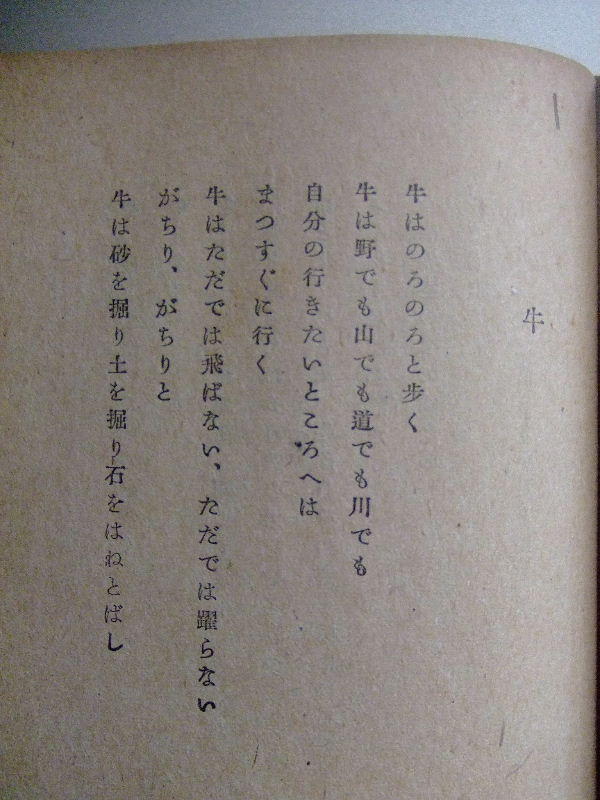 牛
牛はのろのろと歩く
牛は野でも山でも道でも川でも
自分の行きたいところへは
まつすぐに行く
牛はただでは飛ばない、ただでは躍らない
がちり、がちりと
牛は砂を掘り土を掘り石をはねとばし